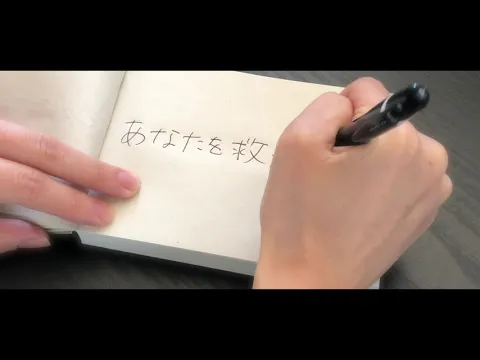 あなたを救